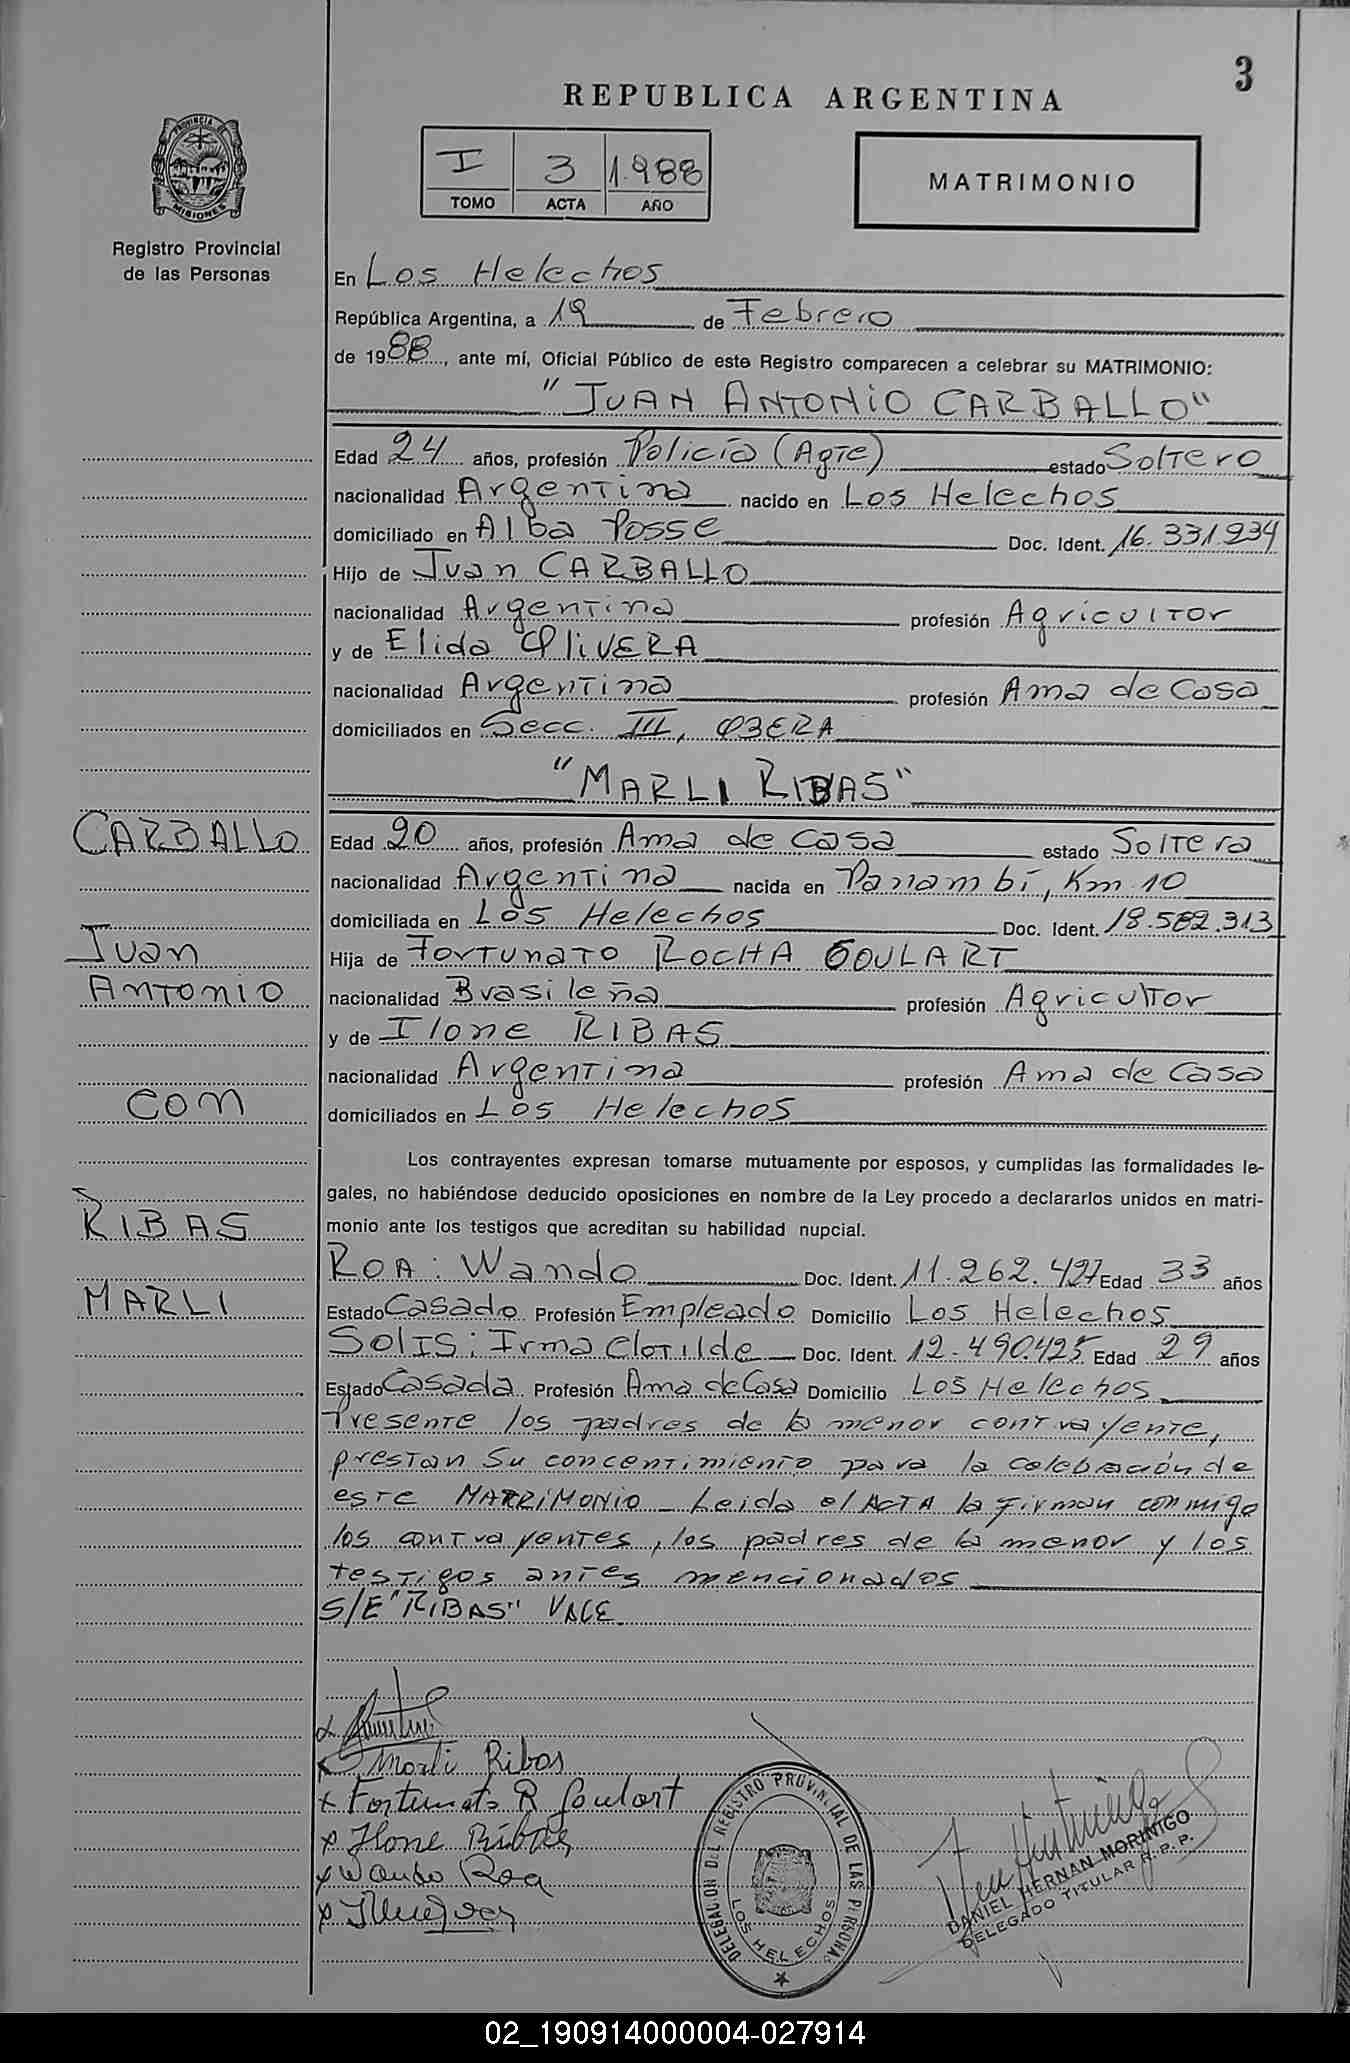 3
REPUBLICA ARGENTINA
I 3 1.988
TOMO ACTA AÑO
MATRIMONIO
PROVINCIA DE MISIONES
Registro Provincial
de las Personas
En Los Helechos
República Argentina, a 19 de Febrero
de 1988, ante mí, Oficial Público de este Registro comparecen a celebrar su MATRIMONIO:
"JUAN ANTONIO CARBALLO"
Edad 24 años, profesión Policía (Agte) estado Soltero
nacionalidad Argentina nacido en Los Helechos
domiciliado en Alba Posse Doc. Ident. 16.331.934
Hijo de Juan CARBALLO
nacionalidad Argentina profesión Agricultor
y de Elida OliVERA
nacionalidad Argentina profesión Ama de Casa
domiciliados en Secc. III, OBERA
"MARLI RIBAS"
Edad 20 años, profesión Ama de casa estado Soltera
nacionalidad Argentina nacida en Panambí, Km 10
domiciliada en Los Helechos Doc. Ident. 18.582.313
Hija de Fortunato ROCHA GOULART
nacionalidad Brasileña profesión Agricultor
y de Ilone RIBAS
nacionalidad Argentina profesión Ama de Casa
domiciliados en Los Helechos
CARBALLO
Juan
Antonio
con
RIBAS
MARLI
Los contrayentes expresan tomarse mutuamente por esposos, y cumplidas las formalidades le-
gales, no habiéndose deducido oposiciones en nombre de la Ley procedo a declararlos unidos en matri-
monio ante los testigos que acreditan su habilidad nupcial.
ROA: Wando Doc. Ident. 11.262.427 Edad 33 años
Estado Casado Profesión Empleado Domicilio Los Helechos
SOLIS: Irma Clotilde Doc. Ident. 12.490.425 Edad 29 años
Estado Casada Profesión Ama de Casa Domicilio Los Helechos
Presente los padres de la menor contrayente,
prestan su concentimiento para la celebración de
este MATRIMONIO - Leida el ACTA la firman conmigo
los contrayentes, los padres de la menor y los
testigos antes mencionados
S/E "RIBAS" VALE
Marli Ribas
Fortunato R Goulart
Ilone Ribas
Wando Roa
DELEGACION DEL REGISTRO PROVINCIAL DE LAS PERSONAS
LOS HELECHOS
DANIEL HERNAN MORINIGO
DELEGADO TITULAR R.P.P.
02_190914000004-027914